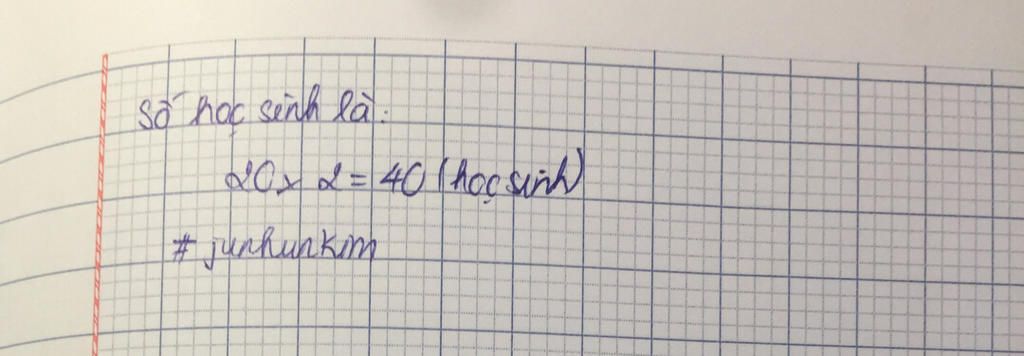 Số học sinh là:
20 x 2 = 40 (học sinh)
# junhunkim